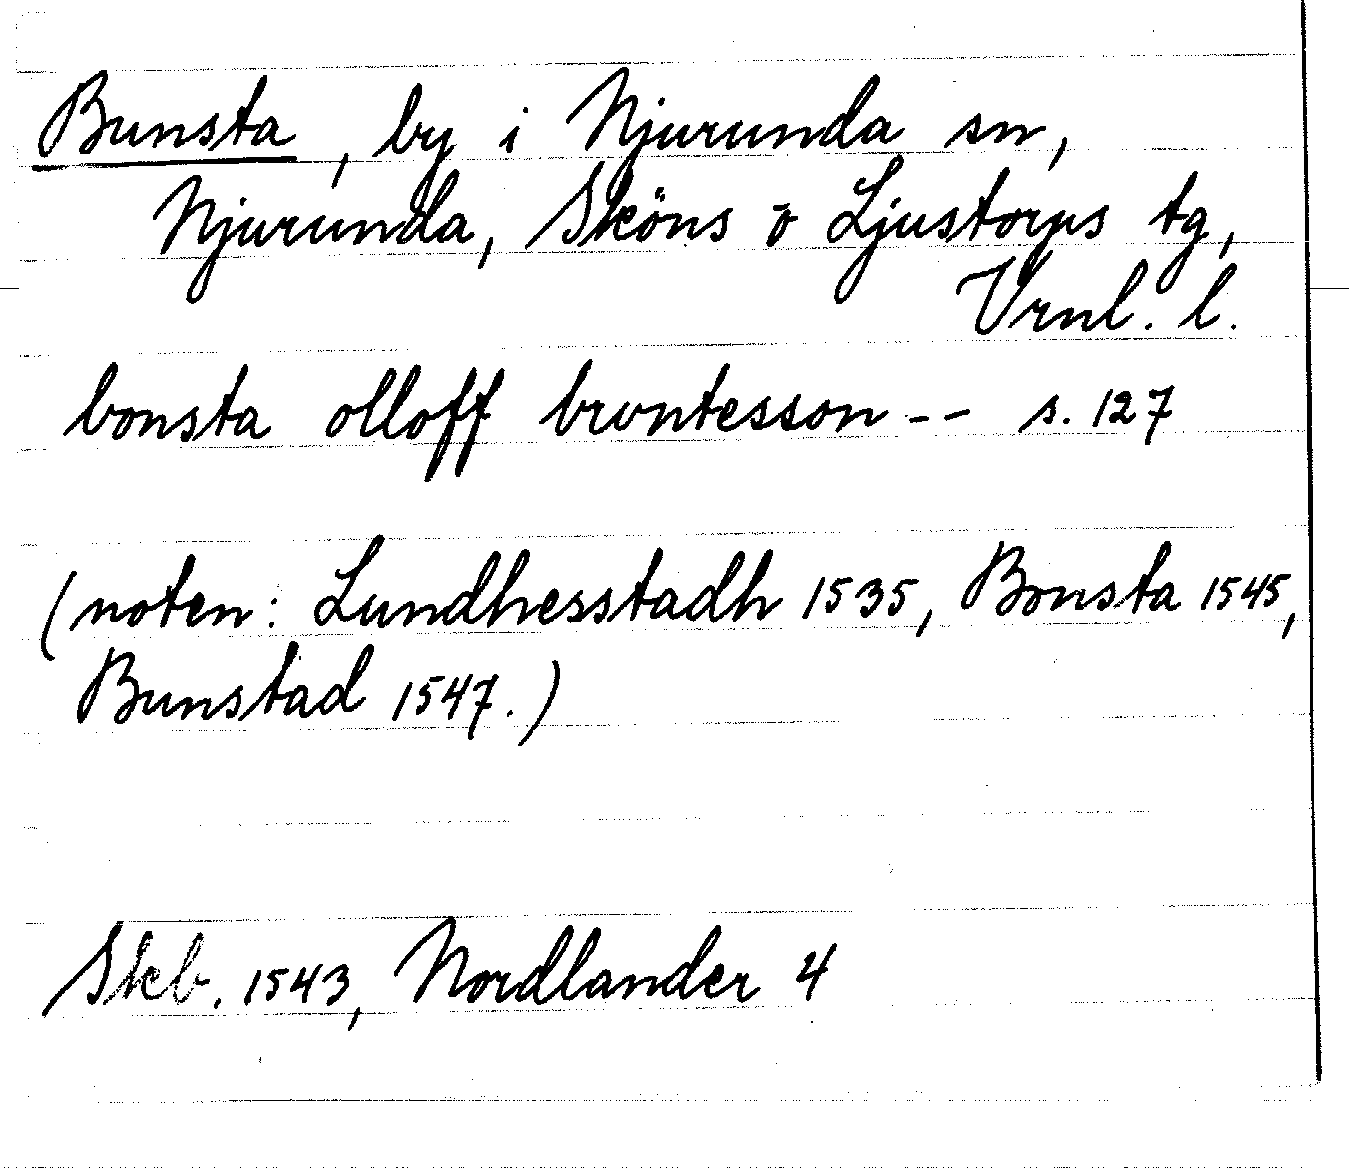 Bunsta, by i Njurunda sn,
Njurunda, Sköns o Ljustorps tg,
Vrnl. l.
bonsta olloff brvntesson -- s. 127
(noten: Lundhesstadh 1535, Bonsta 1545,
Bunstad 1547.)
Skb. 1543, Nordlander 4